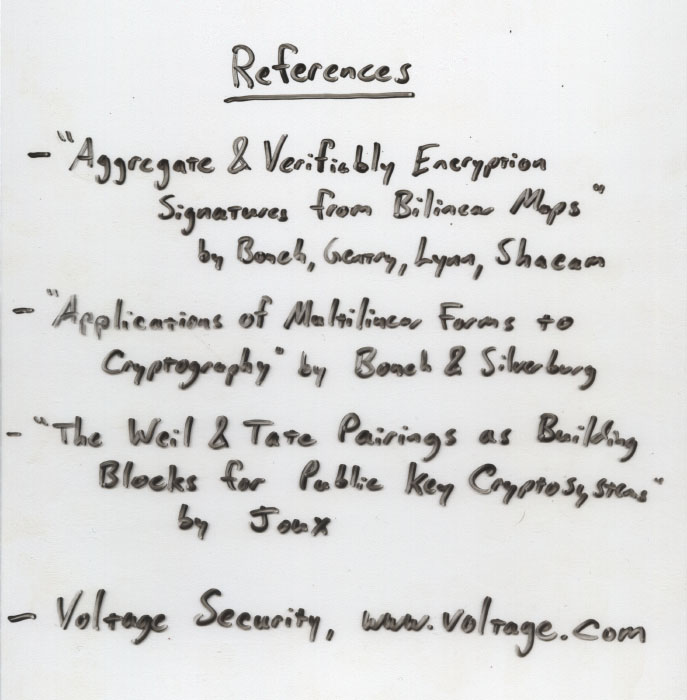 References
- "Aggregate & Verifiably Encryption
Signatures from Bilinear Maps"
by Boneh, Gentry, Lynn, Shacam
- "Applications of Multilinear Forms to
Cryptography" by Boneh & Silverburg
- "The Weil & Tate Pairings as Building
Blocks for Public Key Cryptosystems"
by Joux
- Voltage Security, www.voltage.com